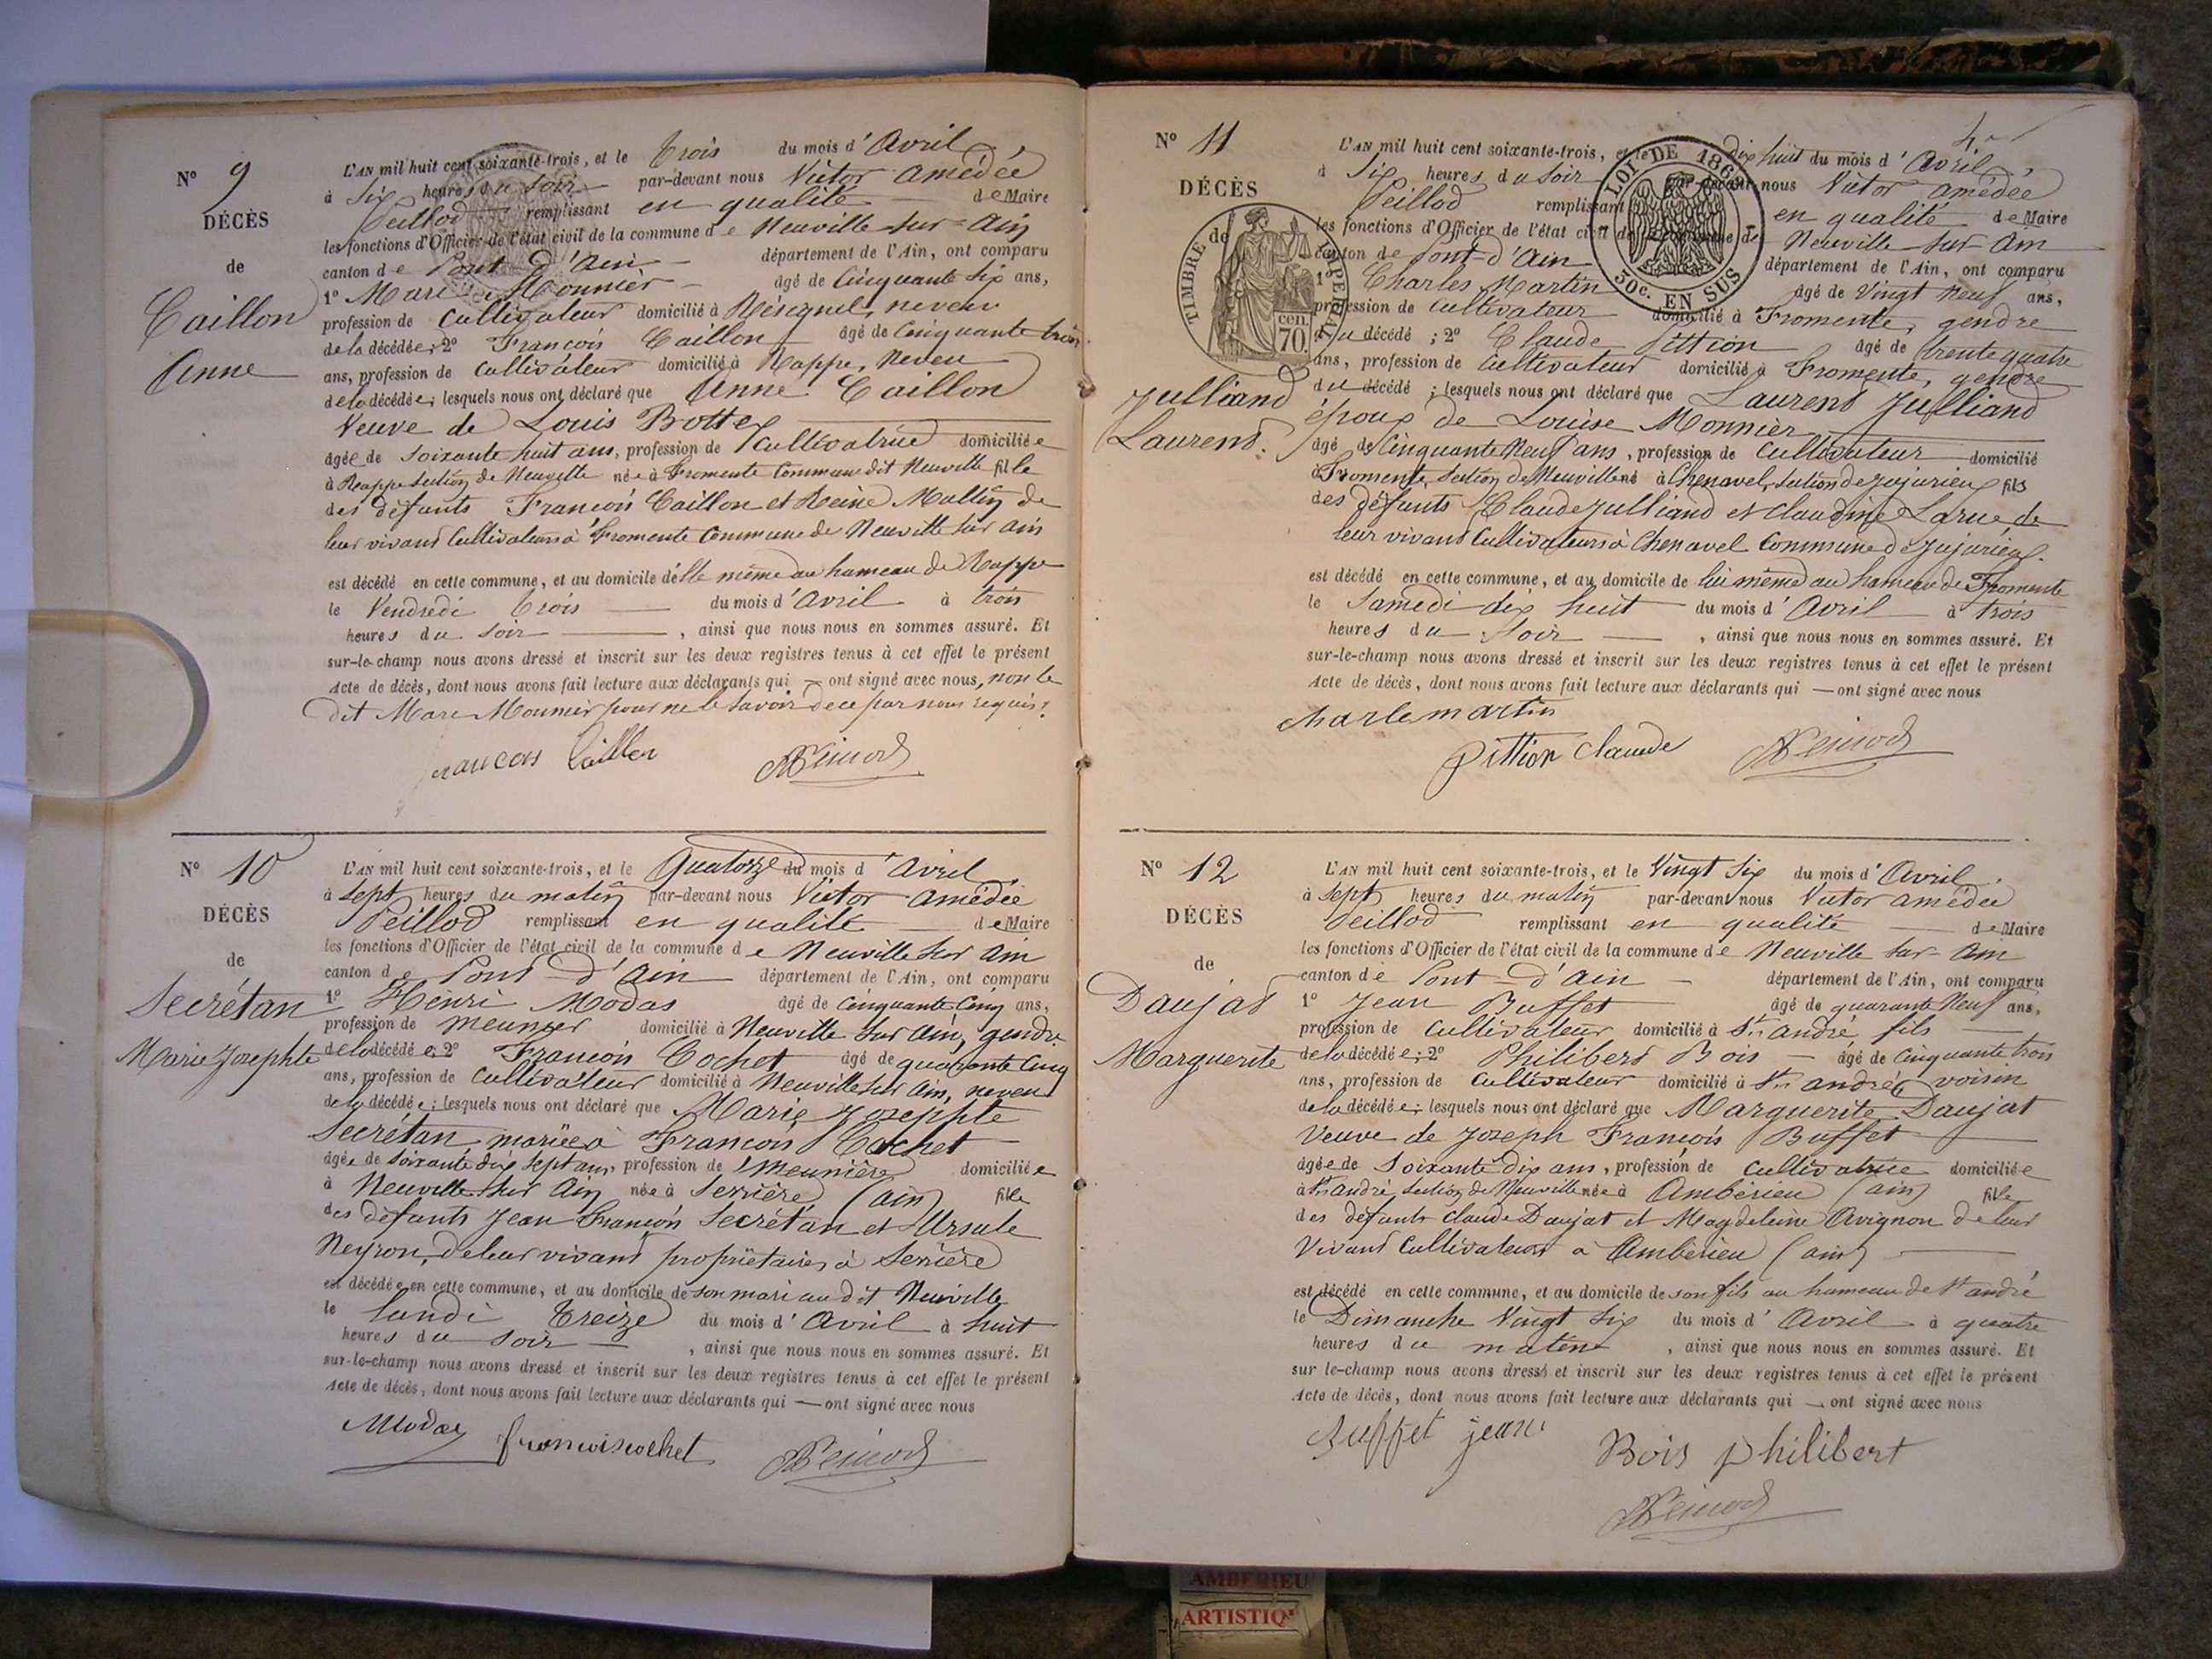 N° 9
DÉCÈS
de
Caillon
Anne
L'AN mil huit cent soixante-trois, et le trois du mois d'Avril
à Six heures du soir par-devant nous Victor Amédée
Peillod remplissant en qualité de Maire
les fonctions d'Officier de l'état civil de la commune de Neuville sur Ain
canton de Pont d'Ain département de l'Ain, ont comparu
1° Marc Monnier âgé de Cinquante Six ans,
profession de Cultivateur domicilié à Résignel, neveu
de la décédée; 2° François Caillon âgé de Cinquante trois
ans, profession de Cultivateur domicilié à Rappe, Neveu
de la décédée; lesquels nous ont déclaré que Anne Caillon
Veuve de Louis Bottex
âgée de soixante huit ans, profession de Cultivatrice domiciliée
à Rappe section de Neuville née à Fromente Commune dit Neuville fille
des défunts François Caillon et Reine Multin de
leur vivant Cultivateurs à Fromente Commune de Neuville sur Ain
est décédé en cette commune, et au domicile d'elle même au hameau de Rappe
le Vendredi trois du mois d'Avril à trois
heures du soir , ainsi que nous nous en sommes assuré. Et
sur-le-champ nous avons dressé et inscrit sur les deux registres tenus à cet effet le présent
Acte de décès, dont nous avons fait lecture aux déclarants qui ont signé avec nous, non le
dit Marc Monnier pour ne le savoir de ce par nous requis.
francois Caillon
N° 10
DÉCÈS
de
Secrétan
Marie Josephte
L'AN mil huit cent soixante-trois, et le Quatorze du mois d'Avril
à sept heures du matin par-devant nous Victor Amédée
Peillod remplissant en qualité de Maire
les fonctions d'Officier de l'état civil de la commune de Neuville sur Ain
canton de Pont d'Ain département de l'Ain, ont comparu
1° Henri Modas âgé de Cinquante Cinq ans,
profession de meunier domicilié à Neuville sur Ain, gendre
de la décédée; 2° François Cochet âgé de quarante Cinq
ans, profession de Cultivateur domicilié à Neuville sur Ain, neveu
de la décédée; lesquels nous ont déclaré que Marie Josephte
Secrétan mariée à François Cochet
âgée de soixante dix sept ans, profession de Meunière domiciliée
à Neuville sur Ain née à Serrière (ain) fille
des défunts Jean François Secrétan et Ursule
Neyron, de leur vivant propriétaires à Serrière
est décédée en cette commune, et au domicile de son mari au dit Neuville
le lundi treize du mois d'Avril à huit
heures du soir , ainsi que nous nous en sommes assuré. Et
sur-le-champ nous avons dressé et inscrit sur les deux registres tenus à cet effet le présent
Acte de décès, dont nous avons fait lecture aux déclarants qui — ont signé avec nous
Modas francois cochet
N° 11
DÉCÈS
de
TIMBRE IMPERIAL
70 cen.
LOI DE 1862
50c. EN SUS
Julliand
Laurent.
L'AN mil huit cent soixante-trois, et le dix huit du mois d'Avril
à Six heures du soir par-devant nous Victor Amédée
Peillod remplissant en qualité de Maire
les fonctions d'Officier de l'état civil de la commune de Neuville sur Ain
canton de Pont-d'Ain département de l'Ain, ont comparu
1° Charles Martin âgé de Vingt Neuf ans,
profession de cultivateur domicilié à Fromente, gendre
du décédé; 2° Claude Pittion âgé de trente quatre
ans, profession de Cultivateur domicilié à Fromente, gendre
du décédé; lesquels nous ont déclaré que Laurent Julliand
époux de Louise Monnier
âgé de Cinquante Neuf ans, profession de Cultivateur domicilié
à Fromente, Section de Neuville né à Chenavel, section de Jujurieux fils
des défunts Claude Julliand et Claudine Larue de
leur vivant Cultivateurs à Chenavel Commune de Jujurieux.
est décédé en cette commune, et au domicile de lui même au hameau de Fromente
le Samedi dix huit du mois d'Avril à trois
heures du soir , ainsi que nous nous en sommes assuré. Et
sur-le-champ nous avons dressé et inscrit sur les deux registres tenus à cet effet le présent
Acte de décès, dont nous avons fait lecture aux déclarants qui — ont signé avec nous
charle martin
pittion claude
N° 12
DÉCÈS
de
Daujat
Marguerite
L'AN mil huit cent soixante-trois, et le Vingt Six du mois d'Avril
à sept heures du matin par-devant nous Victor amédée
Peillod remplissant en qualité de Maire
les fonctions d'Officier de l'état civil de la commune de Neuville sur Ain
canton de Pont-d'ain département de l'Ain, ont comparu
1° Jean Buffet âgé de quarante Neuf ans,
profession de Cultivateur domicilié à St andré, fils
de la décédée; 2° Philibert Bois âgé de Cinquante trois
ans, profession de Cultivateur domicilié à St andré, voisin
de la décédée; lesquels nous ont déclaré que Marguerite Daujat
Veuve de Joseph François Buffet
âgée de Soixante dix ans, profession de cultivatrice domiciliée
à St André, section de Neuville née à Ambérieu (ain) fille
des défunts Claude Daujat et Magdeleine Avignon de leur
Vivant Cultivateurs à Ambérieu (ain)
est décédé en cette commune, et au domicile de son fils au hameau de St andré
le Dimanche Vingt Six du mois d'Avril à quatre
heures du matin , ainsi que nous nous en sommes assuré. Et
sur le-champ nous avons dressé et inscrit sur les deux registres tenus à cet effet le présent
Acte de décès, dont nous avons fait lecture aux déclarants qui — ont signé avec nous
Buffet jean
Bois philibert
AMBERIEU
ARTISTIQ